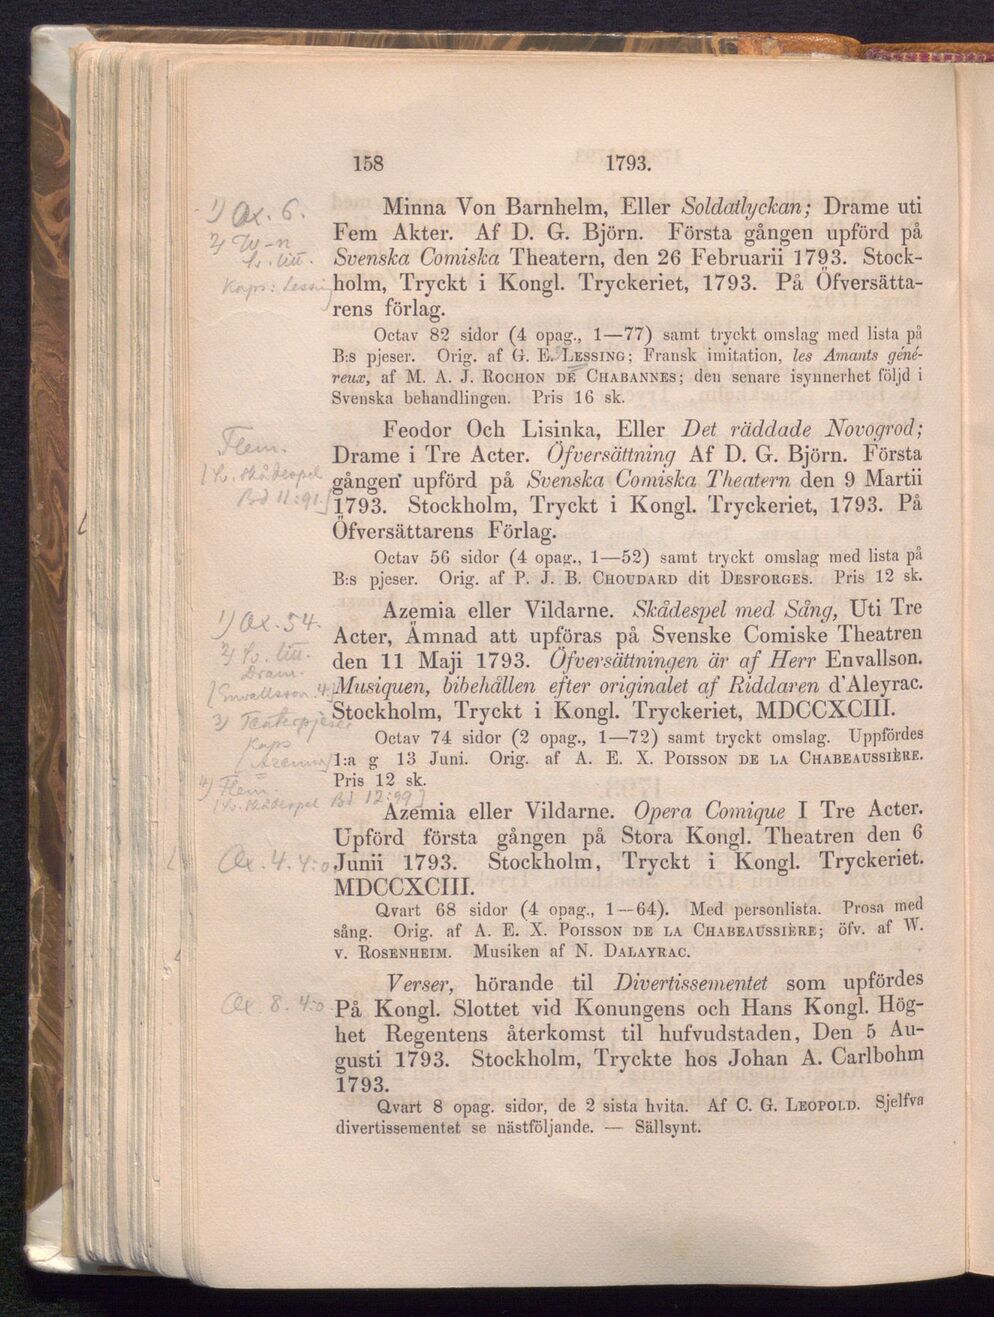 158 1793.
1) Ox. 6.
Minna Von Barnhelm, Eller Soldatlyckan; Drame uti
Fem Akter. Af D. G. Björn. Första gången upförd på
Svenska Comiska Theatern, den 26 Februarii 1793. Stock-
holm, Tryckt i Kongl. Tryckeriet, 1793. På Öfversätta-
rens förlag.
Octav 82 sidor (4 opag., 1—77) samt tryckt omslag med lista på
B:s pjeser. Orig. af G. E. Lessing; Fransk imitation, les Amants géné-
reux, af M. A. J. Rochon de Chabannes; den senare isynnerhet följd i
Svenska behandlingen. Pris 16 sk.
Flem.
Feodor Och Lisinka, Eller Det räddade Novogrod;
Drame i Tre Acter. Öfversättning Af D. G. Björn. Första
gången upförd på Svenska Comiska Theatern den 9 Martii
1793. Stockholm, Tryckt i Kongl. Tryckeriet, 1793. På
Öfversättarens Förlag.
Octav 56 sidor (4 opag., 1—52) samt tryckt omslag med lista på
B:s pjeser. Orig. af P. J. B. Choudard dit Desforges. Pris 12 sk.
1) Ox. 54.
Azemia eller Vildarne. Skådespel med Sång, Uti Tre
Acter, Ämnad att upföras på Svenske Comiske Theatren
den 11 Maji 1793. Öfversättningen är af Herr Envallson.
Musiquen, bibehållen efter originalet af Riddaren d'Aleyrac.
Stockholm, Tryckt i Kongl. Tryckeriet, MDCCXCIII.
Octav 74 sidor (2 opag., 1—72) samt tryckt omslag. Uppfördes
1:a g 13 Juni. Orig. af A. E. X. Poisson de la Chabeaussière.
Pris 12 sk.
4) Flem.
Bd 12:99]
Azemia eller Vildarne. Opera Comique I Tre Acter.
Upförd första gången på Stora Kongl. Theatren den 6
Ox. 4. 4:o
Junii 1793. Stockholm, Tryckt i Kongl. Tryckeriet.
MDCCXCIII.
Qvart 68 sidor (4 opag., 1—64). Med personlista. Prosa med
sång. Orig. af A. E. X. Poisson de la Chabeaussière; öfv. af W.
v. Rosenheim. Musiken af N. Dalayrac.
Verser, hörande til Divertissementet som upfördes
Ox 8. 4:o
På Kongl. Slottet vid Konungens och Hans Kongl. Hög-
het Regentens återkomst til hufvudstaden, Den 5 Au-
gusti 1793. Stockholm, Tryckte hos Johan A. Carlbohm
1793.
Qvart 8 opag. sidor, de 2 sista hvita. Af C. G. Leopold. Sjelfva
divertissementet se nästföljande. — Sällsynt.